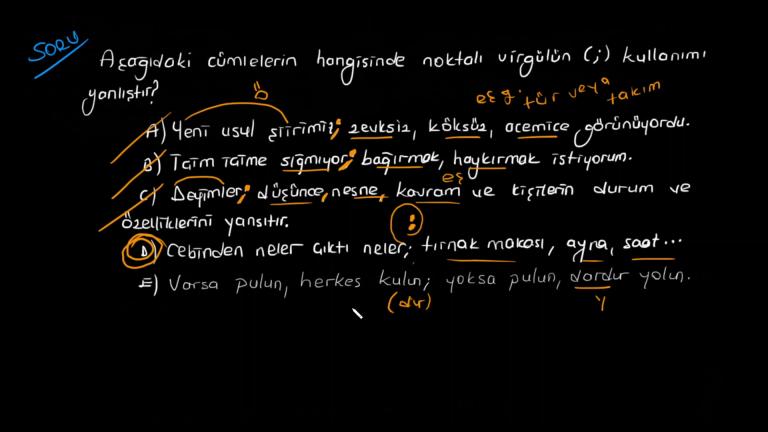 SORU
Aşağıdaki cümlelerin hangisinde noktalı virgülün (;) kullanımı
yanlıştır?
eş g. tür veya takım
Ö
A) Yeni usul şiirimiz; zevksiz, köksüz, acemice görünüyordu.
B) Tatm tatme sığmıyor; bağırmak, haykırmak istiyorum.
eş
C) Deyimler; düşünce, nesne, kavram ve kişilerin durum ve
özelliklerini yansıtır.
:
D) Cebinden neler çıktı neler; tırnak makası, ayna, saat...
E) Varsa pulun, herkes kulun; yoksa pulun, dardır yolun.
(dır) Y